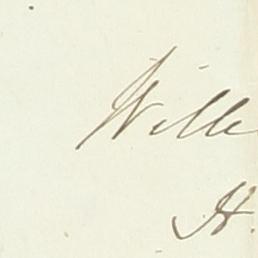 Wille
H.